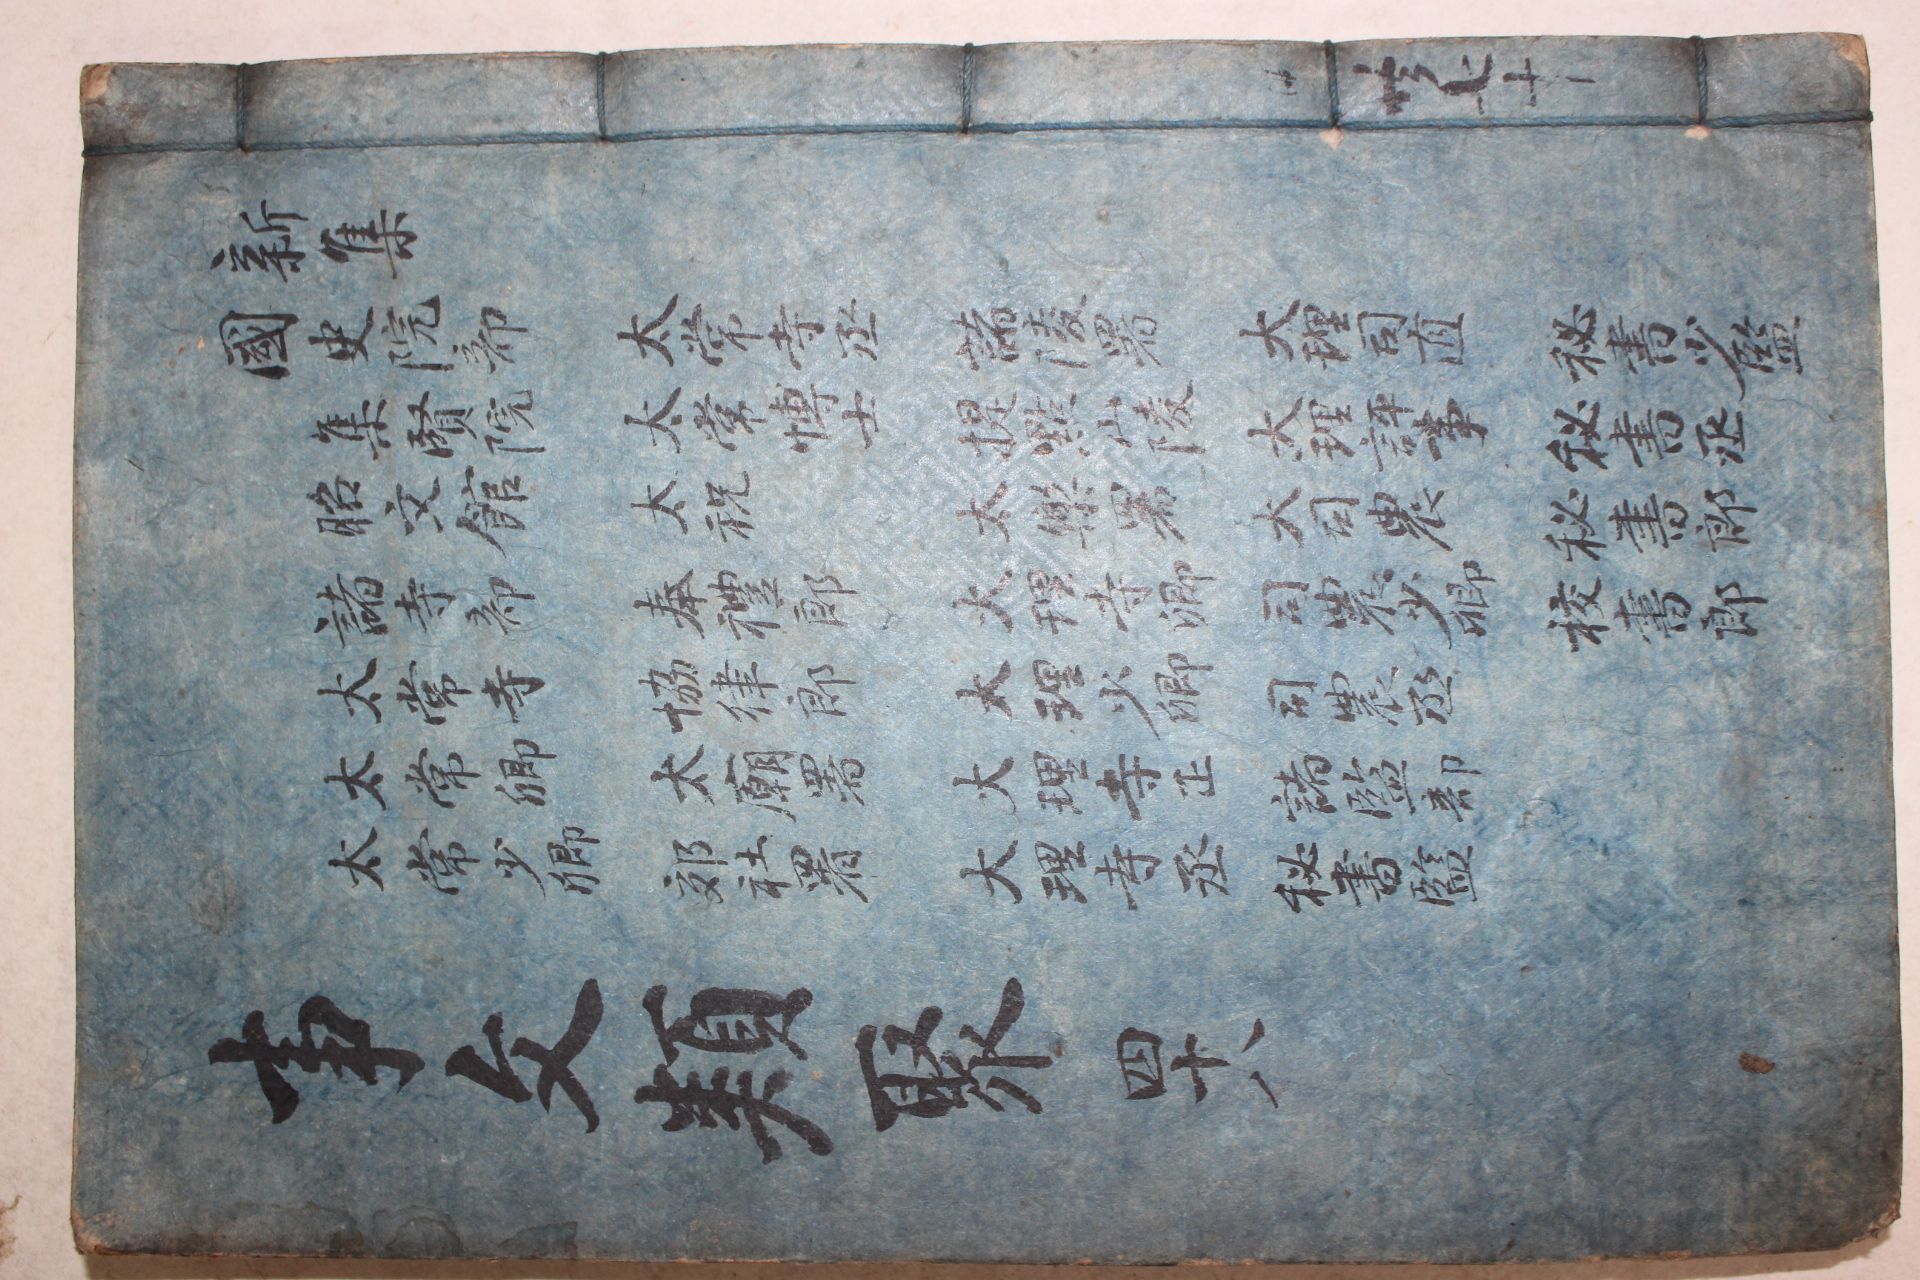 新集
國史院部
集賢院
昭文館
諸寺部
太常寺
太常卿
太常少卿
太常寺丞
太常博士
太祝
奉禮郎
協律郎
太廟署
郊社署
諸陵署
提點山陵
太樂署
大理寺卿
大理少卿
大理寺正
大理寺丞
大理司直
大理評事
大司農
司農少卿
司農丞
諸監部
秘書監
秘書少監
秘書丞
秘書郎
校書郎
事文類聚 四十八
共七十